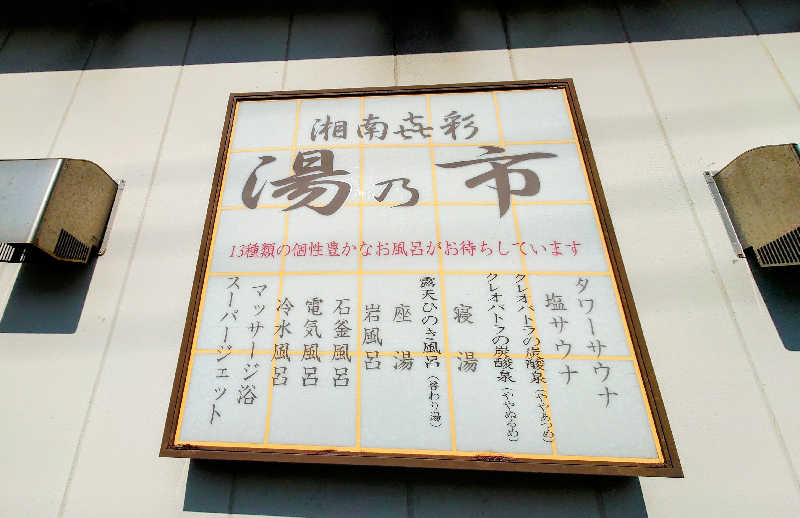 湘南㐂彩
湯乃市
13種類の個性豊かなお風呂がお待ちしています
タワーサウナ
塩サウナ
クレオパトラの炭酸泉(ややあつめ)
クレオパトラの炭酸泉(ややぬるめ)
寝湯
露天ひのき風呂(替わり湯)
座湯
岩風呂
石釜風呂
電気風呂
冷水風呂
マッサージ浴
スーパージェット